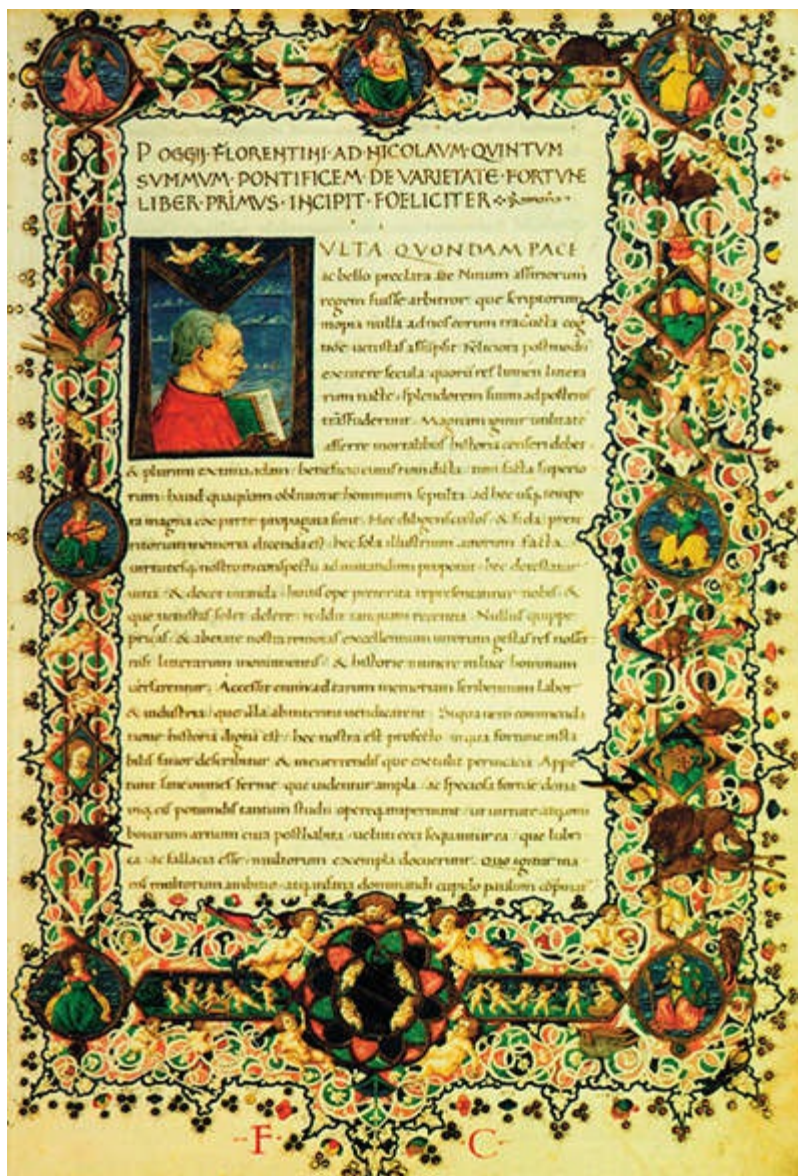 POGGIJ·FLORENTINI·AD·NICOLAVM·QVINTVM
SVMMVM·PONTIFICEM·DE VARIETATE·FORTVNE
LIBER·PRIMVS·INCIPIT·FOELICITER
VLTA QVONDAM PACE
ac bello preclara Ninum assiriorum
regem fuisse arbitror que scriptorum
inopia nulla ad nos eorum
Feliciora postmodū
secula lumen littera
rum splendorem suum ad posteros
Magnam igitur utilitatē
afferre mortalibus historia censeri debet
& plurium beneficio cuius tum dicta tum facta superio
rum haud quaquam obliuione hominum sepulta ad hec usq tempo
ra magna ex parte propagata sunt
memoria dicenda est hec sola illustrium uirorum facta
uirtutesq nostro in conspectu ad imitandum proponit hec detestatur
uitia & docet uitanda huius ope preterita representantur nobis &
que uetustas solet delere reddit tanquam recentia Nullus quippe
& ab etate nostra remotas excellentium uirorum gestas res nosset
nisi litterarum monumentis & historie munere in luce hominum
uersarentur Accessit scribentium labor
& industria que illa ab interitu uendicarent commenda
tione historia digna est hec nostra est profecto in qua fortune insta
bilis furor describitur & in euertendis que extulit peruicacia Appe
tunt sane omnes ferme que uidentur ampla ac speciosa fortune dona
inq eis potiundis tantum studii opereq impertiunt ut uirtute atq
bonarum artium cura posthabita ueluti ceci sequantur ea que lubri
ca ac fallacia esse multorum exempla docuerunt Quo igitur ina
nis multorum ambitio atq dominandi cupido paulum
F C